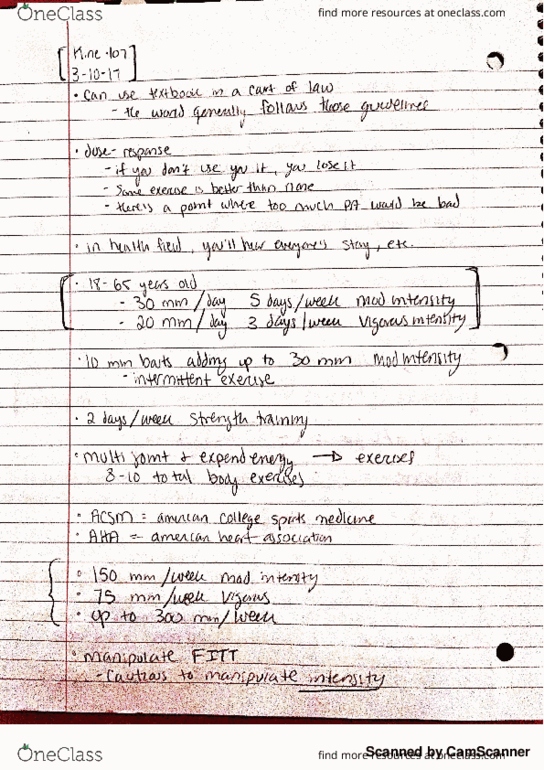 OneClass
find more resources at oneclass.com
Kine 107
3-10-17
• Can use textbook in a court of law
- the world generally follows those guidelines
• dose-response
- if you don't use you it, you lose it
- Some exercise is better than none
- there's a point where too much PA would be bad
• in health field, you'll hear everyone's stay, etc.
• 18-65 years old
- 30 min/day 5 days/week mod intensity
- 20 min/day 3 days/week vigorous intensity
• 10 min bouts adding up to 30 min mod intensity
- intermittent exercise
• 2 days/week strength training
• multi joint & expend energy → exercises
8-10 total body exercises
• ACSM = american college sports medicine
• AHA = american heart association
• 150 min/week mod intensity
• 75 min/week vigorous
• up to 300 min/week
• manipulate FITT
- Cautious to manipulate intensity
OneClass
find more resources at oneclass.com
Scanned by CamScanner